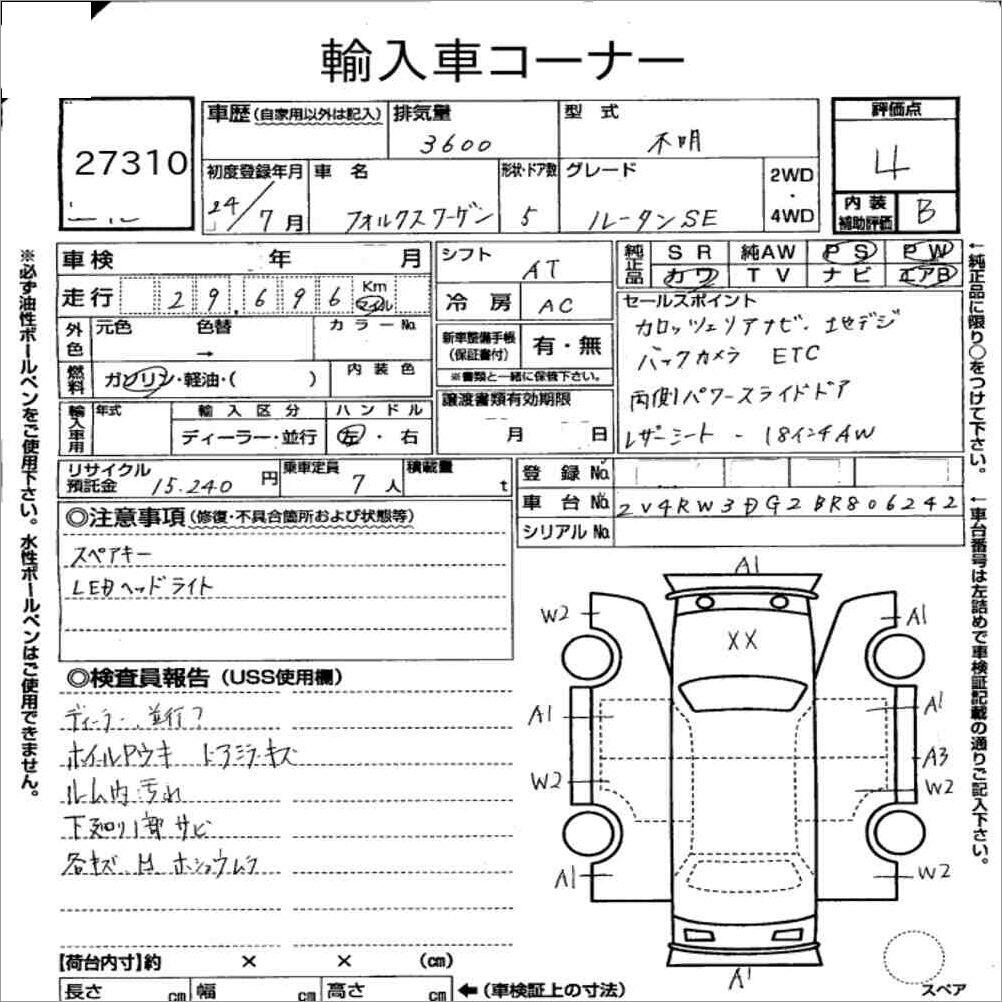 輸入車コーナー
27310
車歴(自家用以外は記入) 排気量 型式 評価点
3600 不明 4
初度登録年月 車名 形状・ドア数 グレード 2WD・4WD 内装補助評価 B
24/7月 フォルクスワーゲン 5 ルータンSE
※必ず油性ボールペンをご使用下さい。水性ボールペンはご使用できません。
車検 年 月
走行 29,696 Km マイル
外色 元色 色替 カラーNo.
→
燃料 ガソリン・軽油・( ) 内装色
輸入車用 年式 輸入区分 ハンドル
ディーラー・並行 左・右
シフト AT
冷房 AC
新車整備手帳(保証書付) 有・無
※書類と一緒に保管下さい。
譲渡書類有効期限
月 日
純正品 SR 純AW PS PW
カワ TV ナビ エアB
セールスポイント
カロッツェリアナビ、地デジ
バックカメラ ETC
両側パワースライドドア
レザーシート - 18インチAW
←純正品に限り○をつけて下さい。
←車台番号は左詰めで車検証記載の通りご記入下さい。
リサイクル預託金 15.240円 乗車定員 7人 積載量 t
登録No.
車台No. 2V4RW3DG2BR806242
シリアルNo.
◎注意事項(修復・不具合箇所および状態等)
スペアキー
LEDヘッドライト
◎検査員報告(USS使用欄)
ディーラー、並行?
ホイールAウキ ドアミラーキズ
ルーム内汚れ
下廻り1部サビ
各キズ、H、ホショウムラ
A1
W2 A1
XX
A1 A1
A3
W2 W2
A1 W2
A1
スペア
【荷台内寸】約 × × (cm)
長さ cm 幅 cm 高さ cm ←(車検証上の寸法)